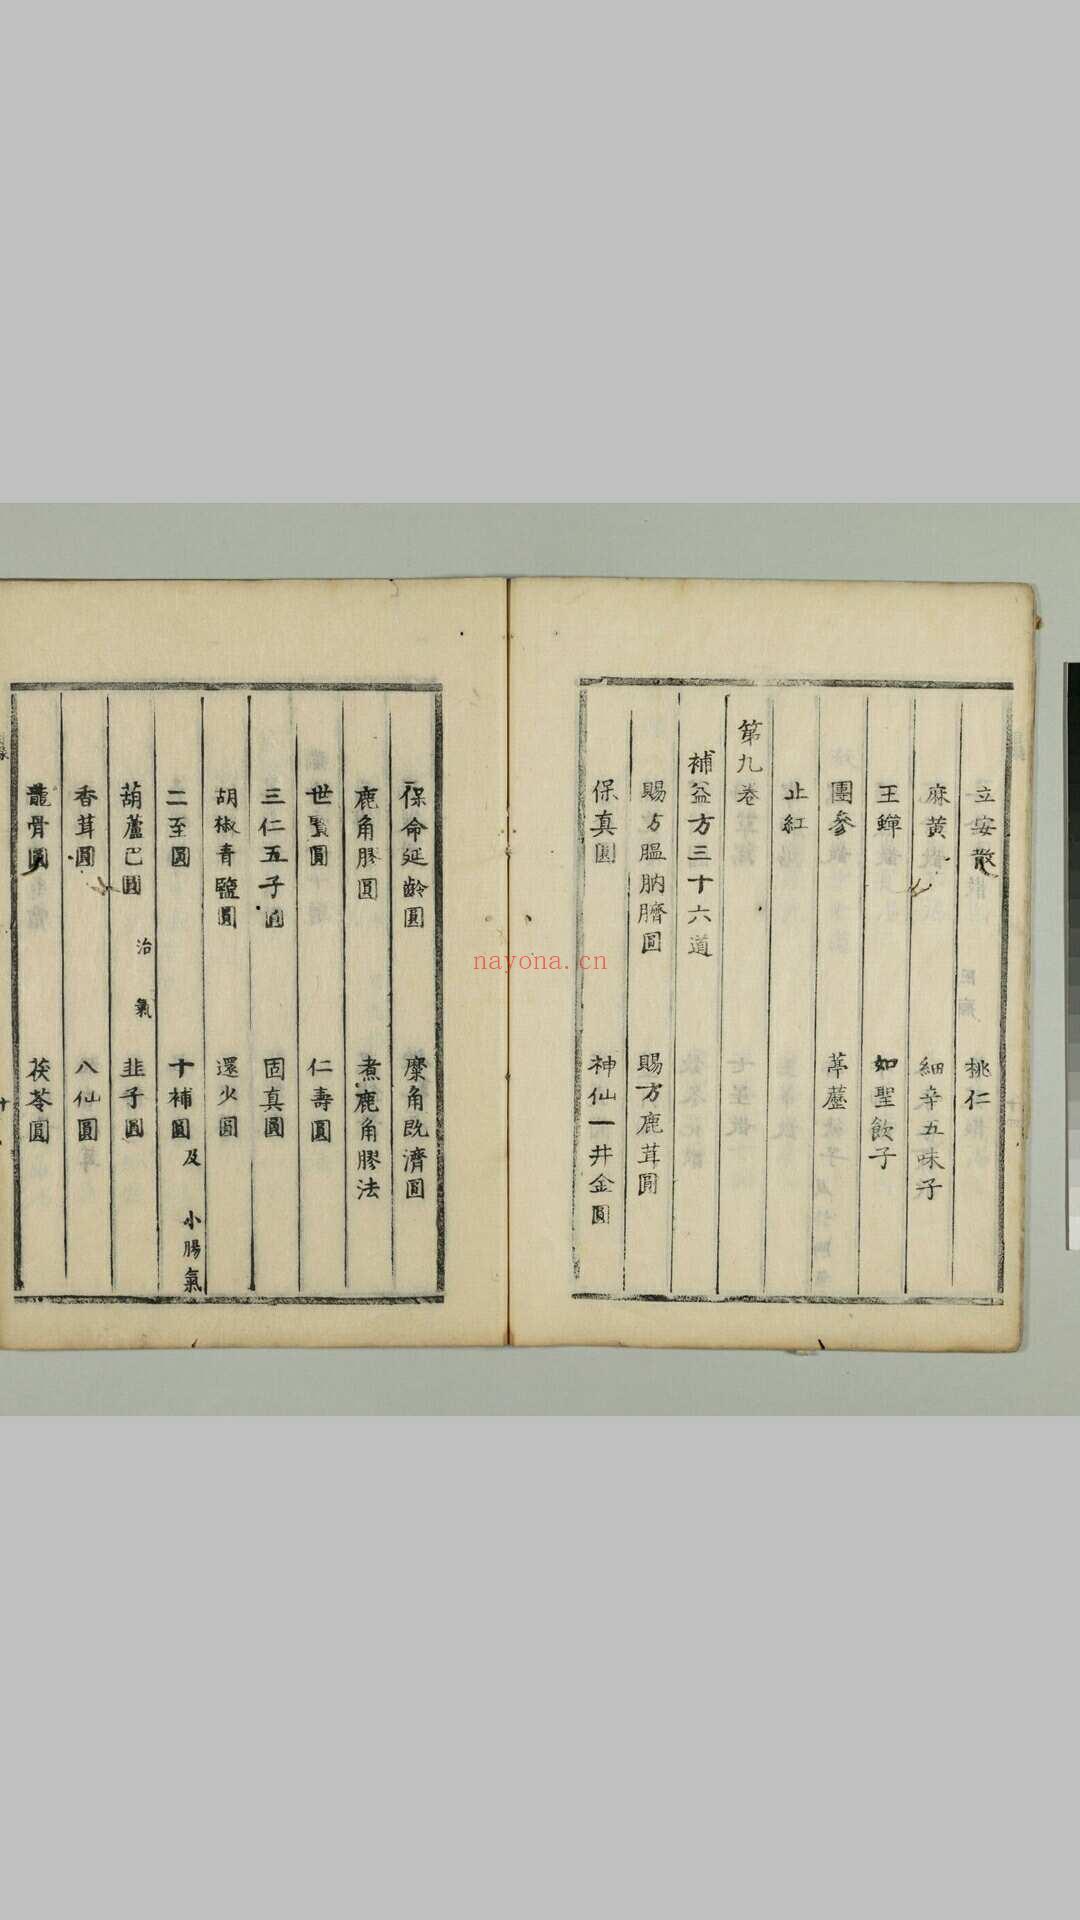 立安散　桃仁
麻黄　細辛五味子
王蟬　如聖飲子
團參　葶藶
止紅
第九卷
補益方三十六道
賜方膃肭臍圓
賜方鹿茸圓
保真圓　神仙一井金圓
保命延齡圓　麋角既濟圓
鹿角膠圓　煮鹿角膠法
世賢圓　仁壽圓
三仁五子圓　固真圓
胡椒青鹽圓　還少圓
二至圓　十補圓　及小腸氣
葫蘆巴圓　治氣　韭子圓
香茸圓　八仙圓
龍骨圓　茯苓圓
nayona.cn